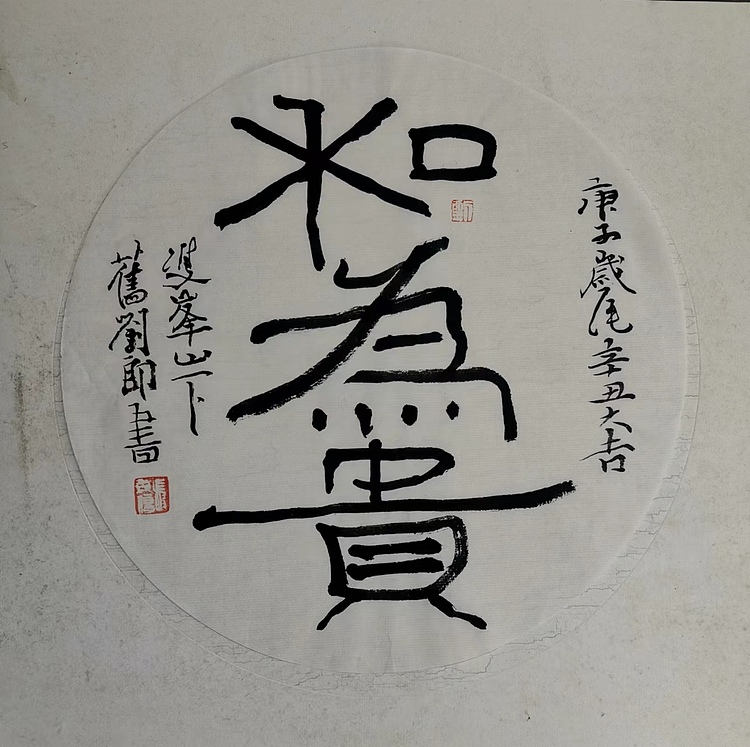 和
為
貴
庚子歲尾辛丑大吉
雙峯山下
舊劉郎書